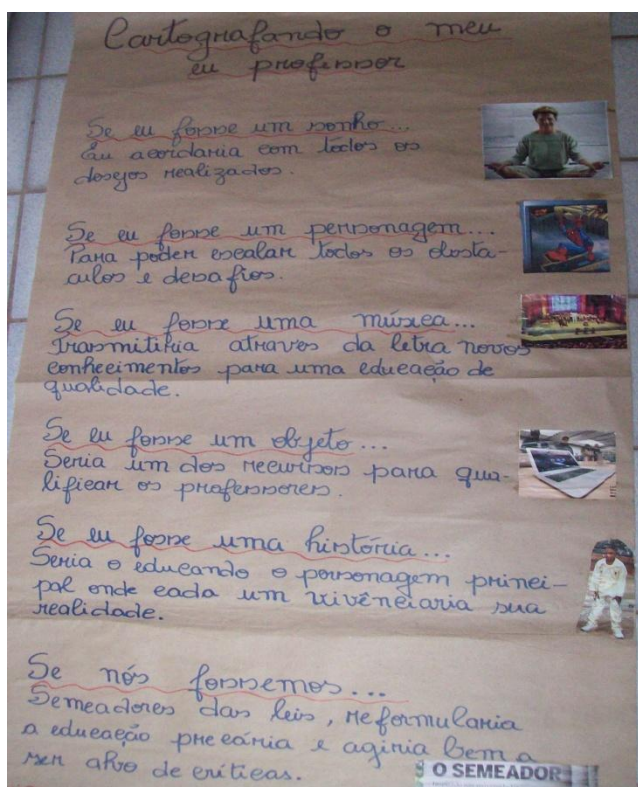 Cartografando o meu
eu professor
Se eu fosse um sonho...
Eu acordaria com todos os
desejos realizados.
Se eu fosse um personagem...
Para poder escalar todos os obsta-
culos e desafios.
Se eu fosse uma música...
Trasmitiria atraves da letra novos
conhecimentos para uma educação de
qualidade.
Se eu fosse um objeto...
Seria um dos recursos para qua-
lificar os professores.
Se eu fosse uma história...
Seria o educando o personagem princi-
pal onde cada um vivênciaria sua
realidade.
Se nós fossemos...
Semeadores das leis, reformularia
a educação precária e agiria bem a
ser alvo de críticas.
O SEMEADOR